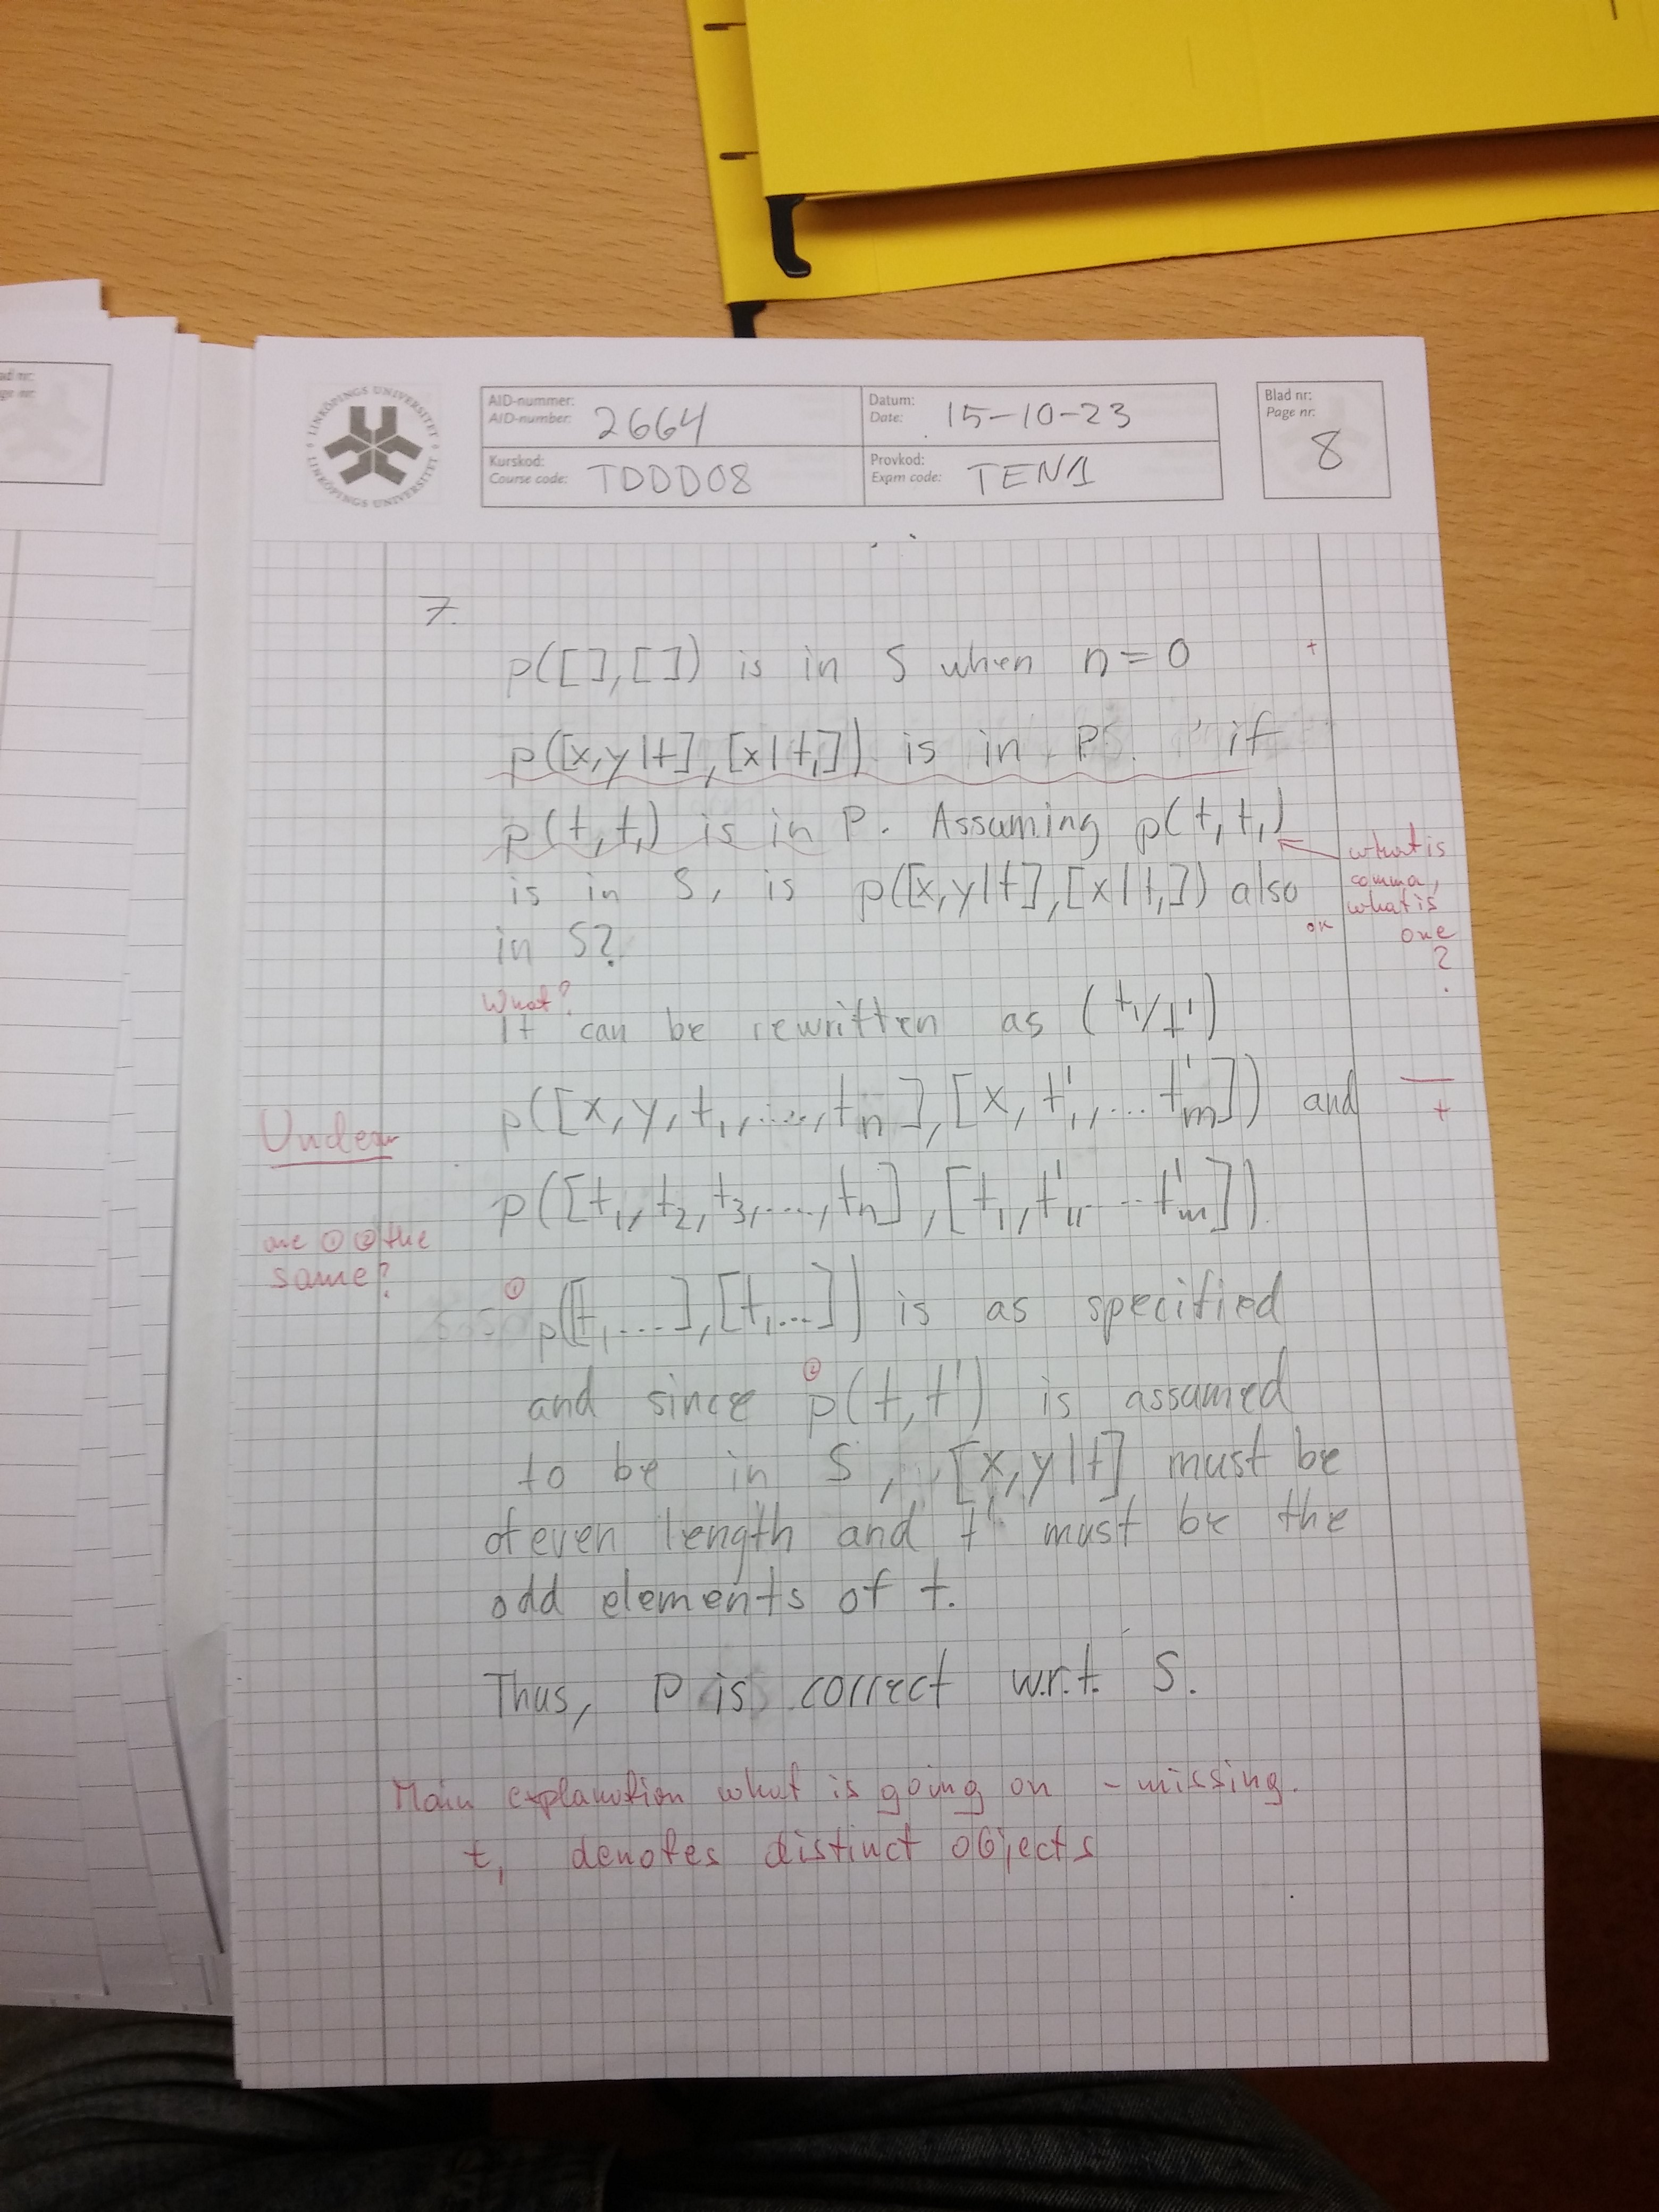 LINKÖPINGS UNIVERSITET
LINKÖPINGS UNIVERSITET
AID-nummer:
AID-number: 2664
Datum:
Date: 15-10-23
Blad nr:
Page nr:
8
Kurskod:
Course code: TDDD08
Provkod:
Exam code: TEN1
7.
p([],[]) is in S when n=0 +
p([x,y|t],[x|t,]) is in P. if
p(t,t,) is in P. Assuming p(t,t,)
what is
comma,
what is
one
?
is in S, is p([x,y|t],[x|t,]) also
in S?
What?
It can be rewritten as (t,/t')
p([x,y,t₁,...,tₙ],[x,t'₁,...t'ₘ]) and
p([t₁,t₂,t₃,...,tₙ],[t₁,t'₁,...t'ₘ]).
are ① ② the
same?
① p([t,...],[t,...]) is as specified
and since ② p(t,t') is assumed
to be in S, [x,y|t] must be
of even length and t' must be the
odd elements of t.
Thus, P is correct w.r.t. S.
Main explanation what is going on - missing.
t, denotes distinct objects